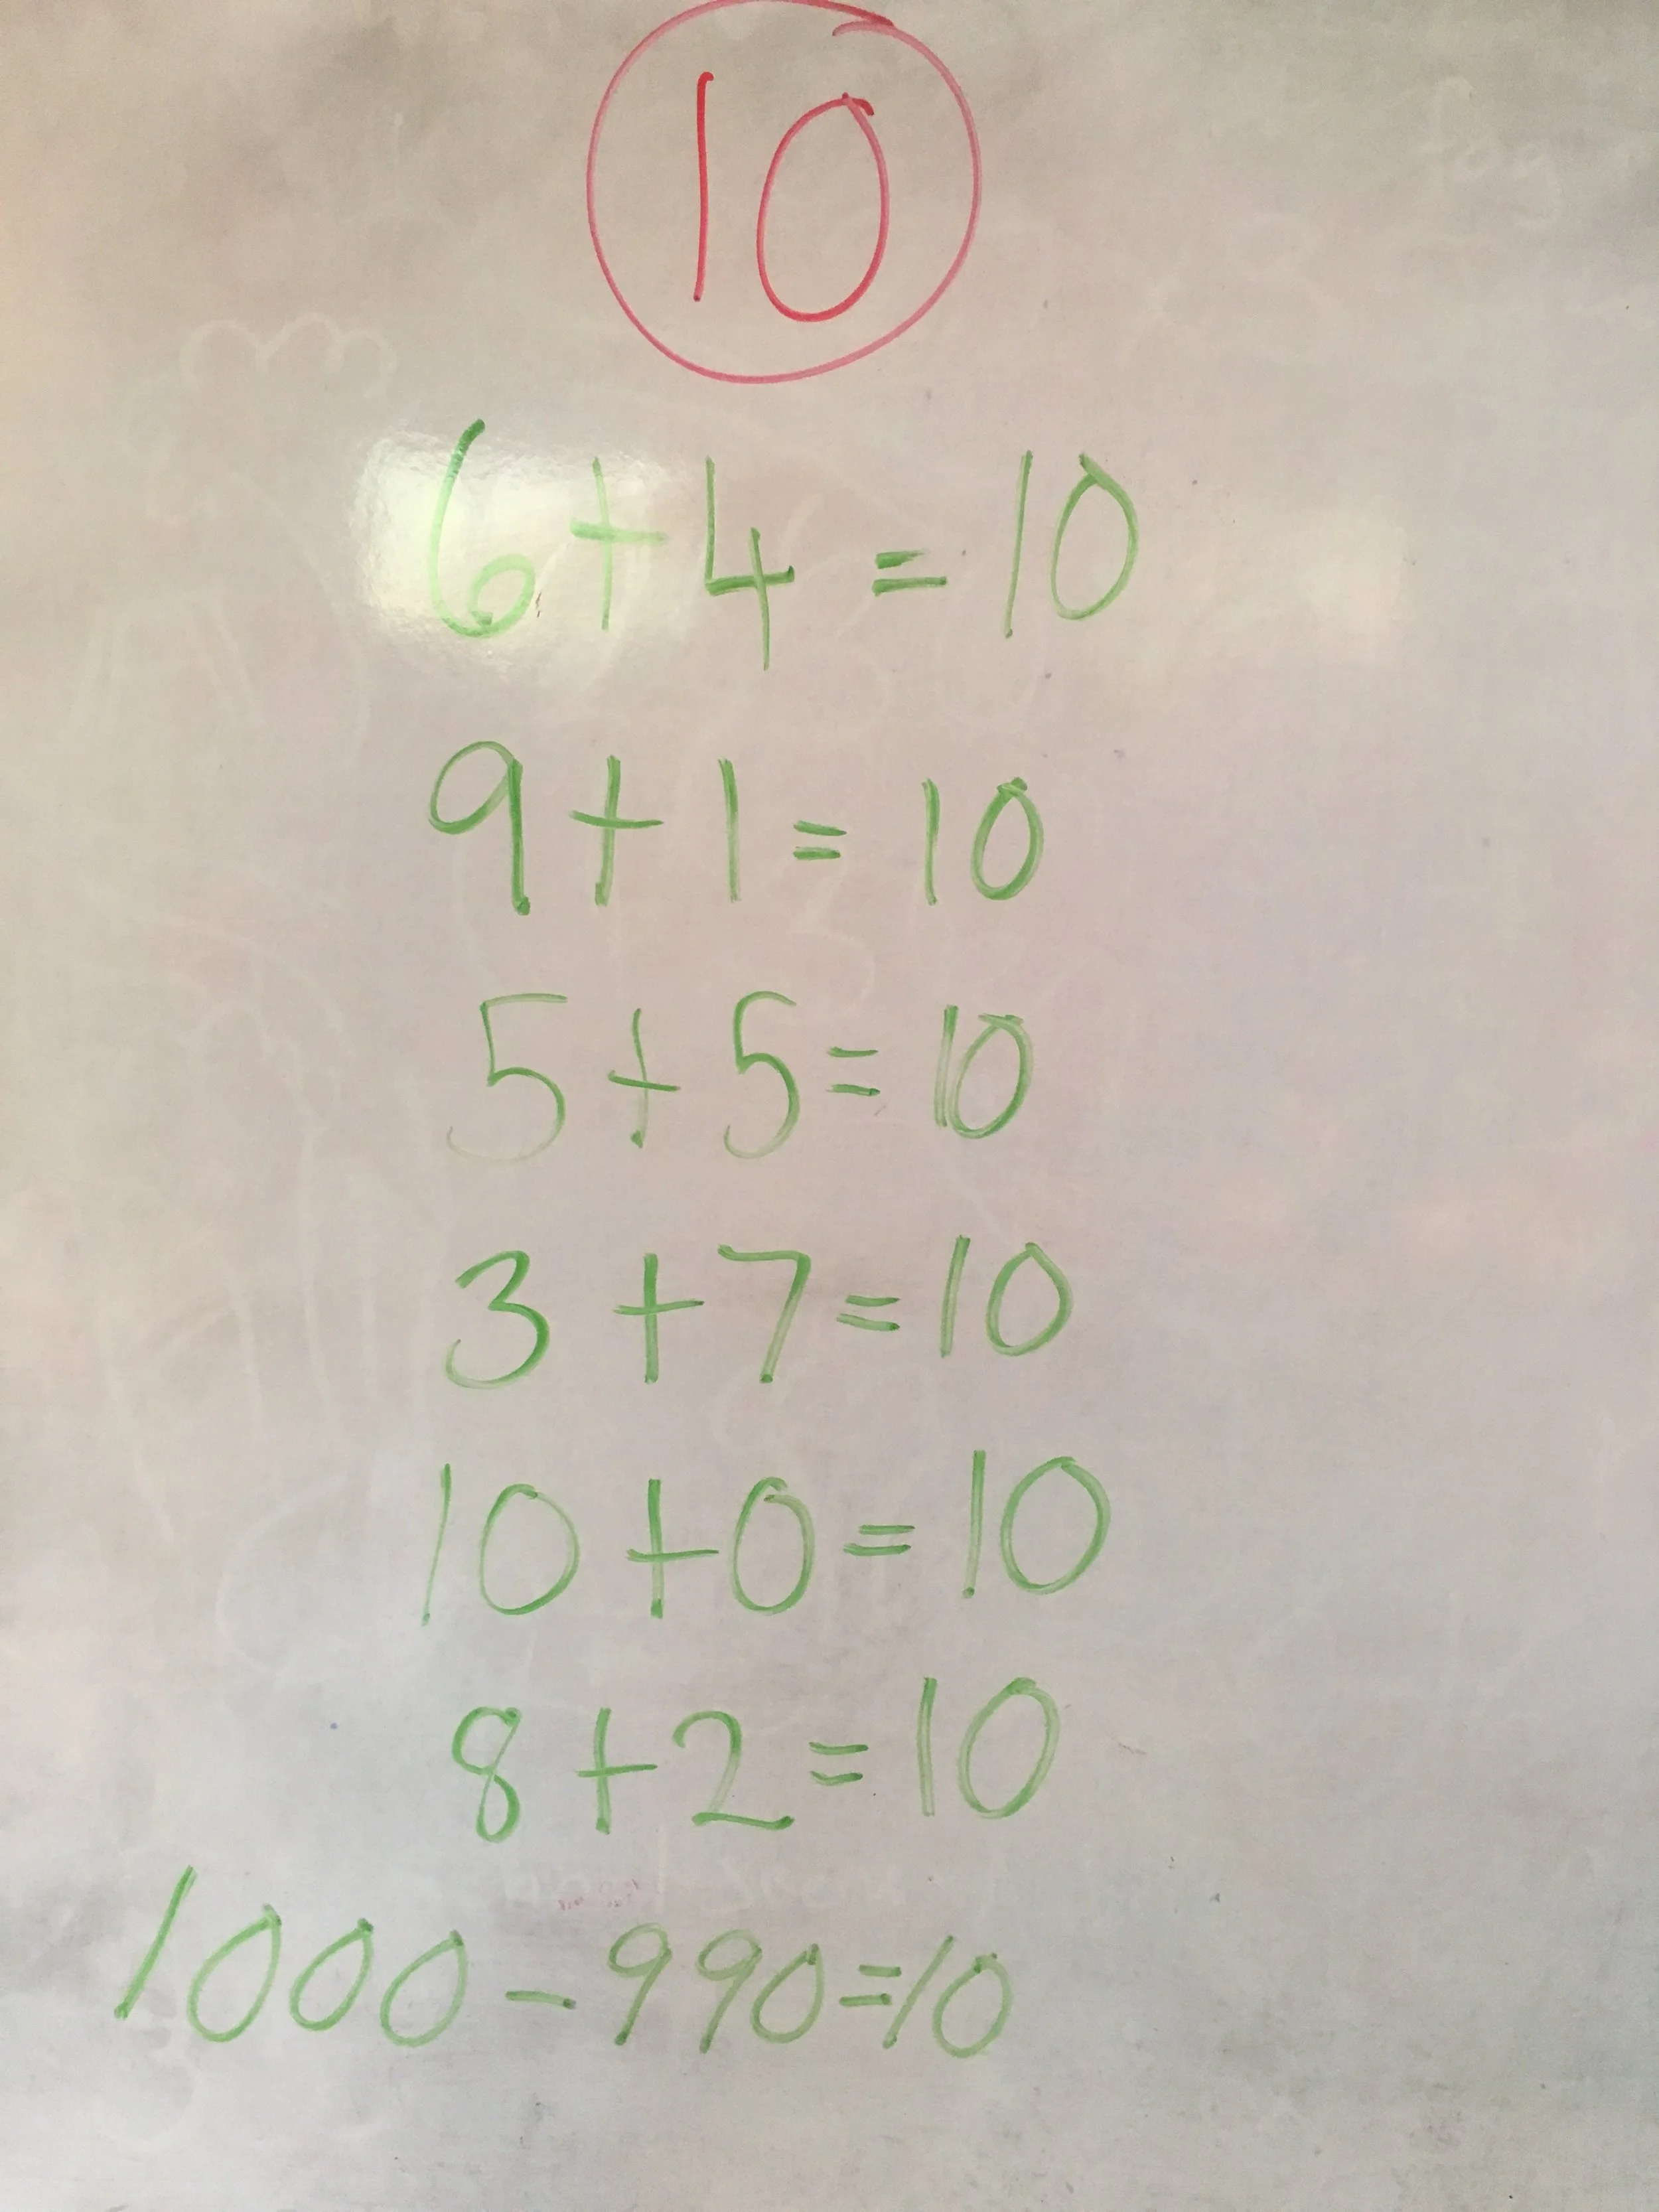 10
6+4=10
9+1=10
5+5=10
3+7=10
10+0=10
8+2=10
1000-990=10